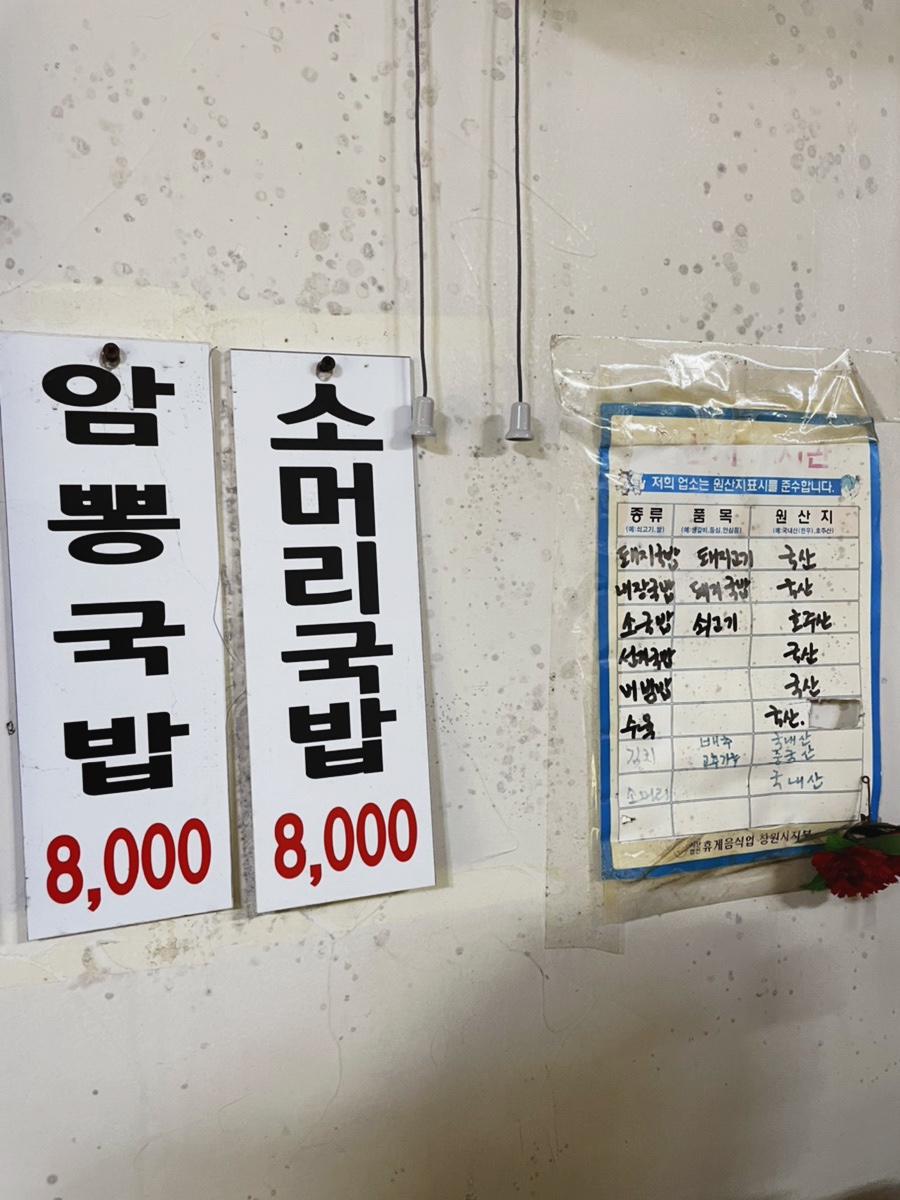 암뽕국밥
8,000
소머리국밥
8,000
저희 업소는 원산지표시를 준수합니다.
종류 품목 원산지
(예:쇠고기,쌀) (예:생갈비,등심,안심등) (예:국내산(한우),호주산)
돼지국밥 돼지고기 국산
내장국밥 돼지국밥 국산
소국밥 쇠고기 호주산
선지국밥 국산
비빔밥 국산
수육 국산.
김치 배추 국내산
고추가루 중국산
소머리 국내산
휴게음식업 창원시지부